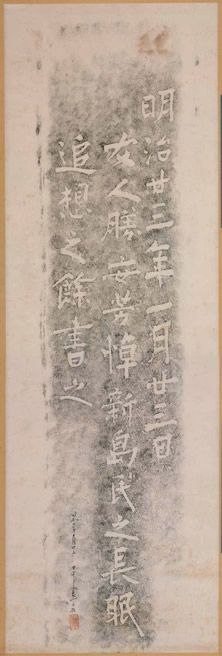 明治廿三年一月廿三日
友人勝安芳悼新島氏之長眠
追想之餘書之